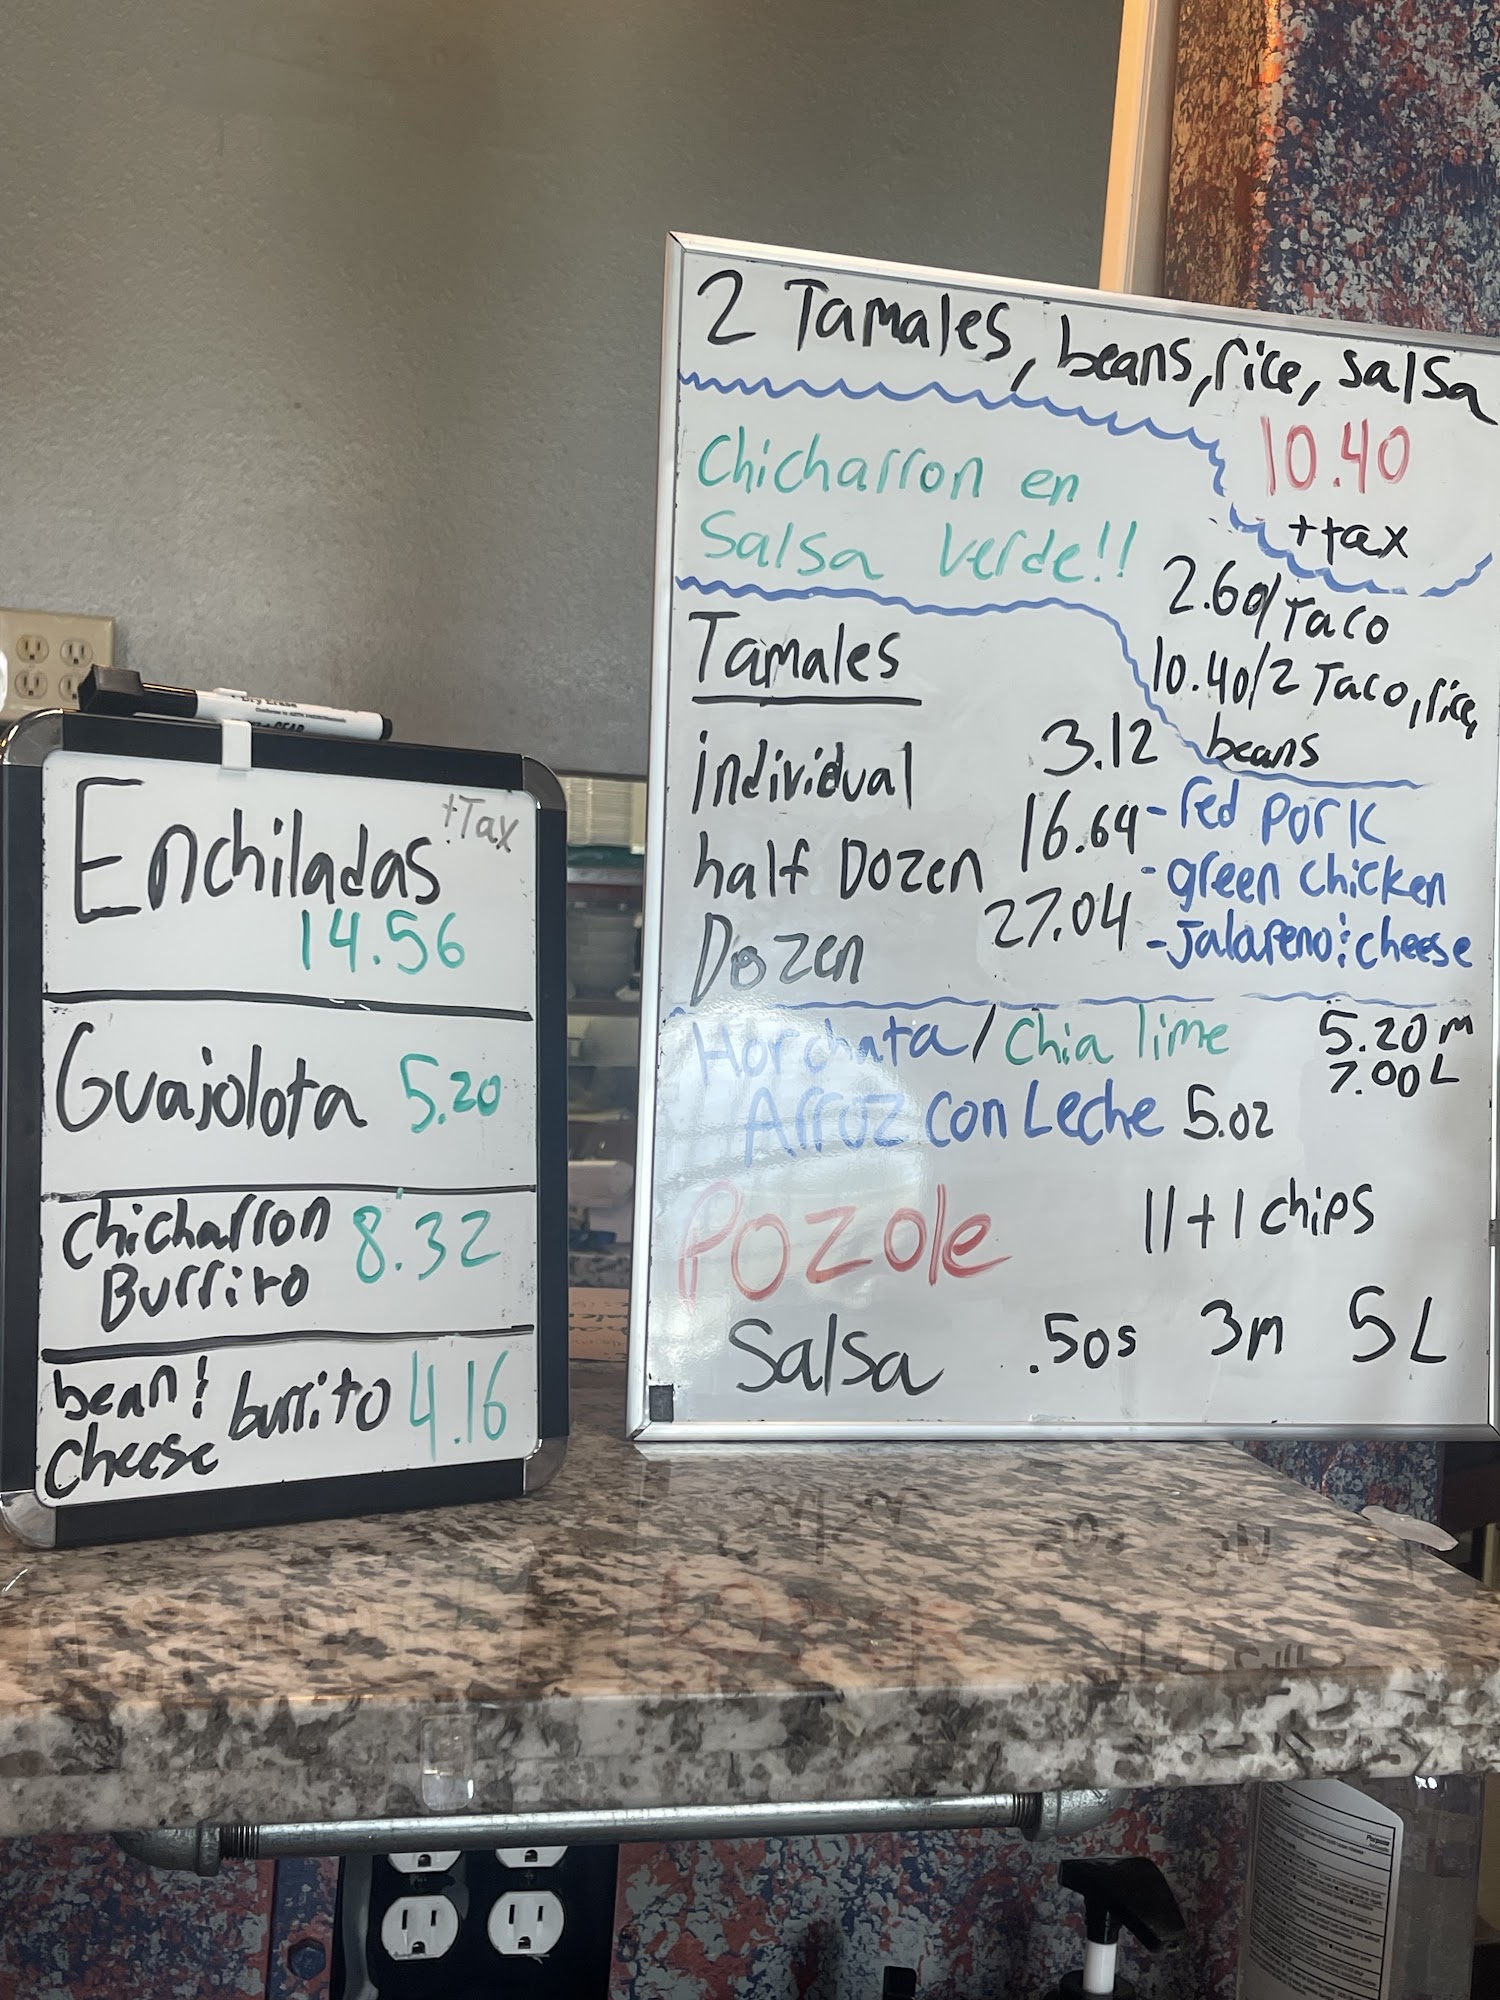 2 Tamales, beans, rice, salsa
10.40
+tax
Chicharron en
Salsa Verde!!
2.60/Taco
10.40/2 Taco, rice,
beans
Tamales
individual 3.12
half Dozen 16.64
Dozen 27.04
- red pork
- green chicken
- Jalapeno & cheese
Horchata / Chia lime 5.20 m
7.00 L
Arroz con Leche 5.02
Pozole 11 + 1 chips
Salsa .50s 3m 5L
Dry Erase
Enchiladas +Tax
14.56
Guajolota 5.20
Chicharron 8.32
Burrito
bean & burrito 4.16
cheese
Purpose